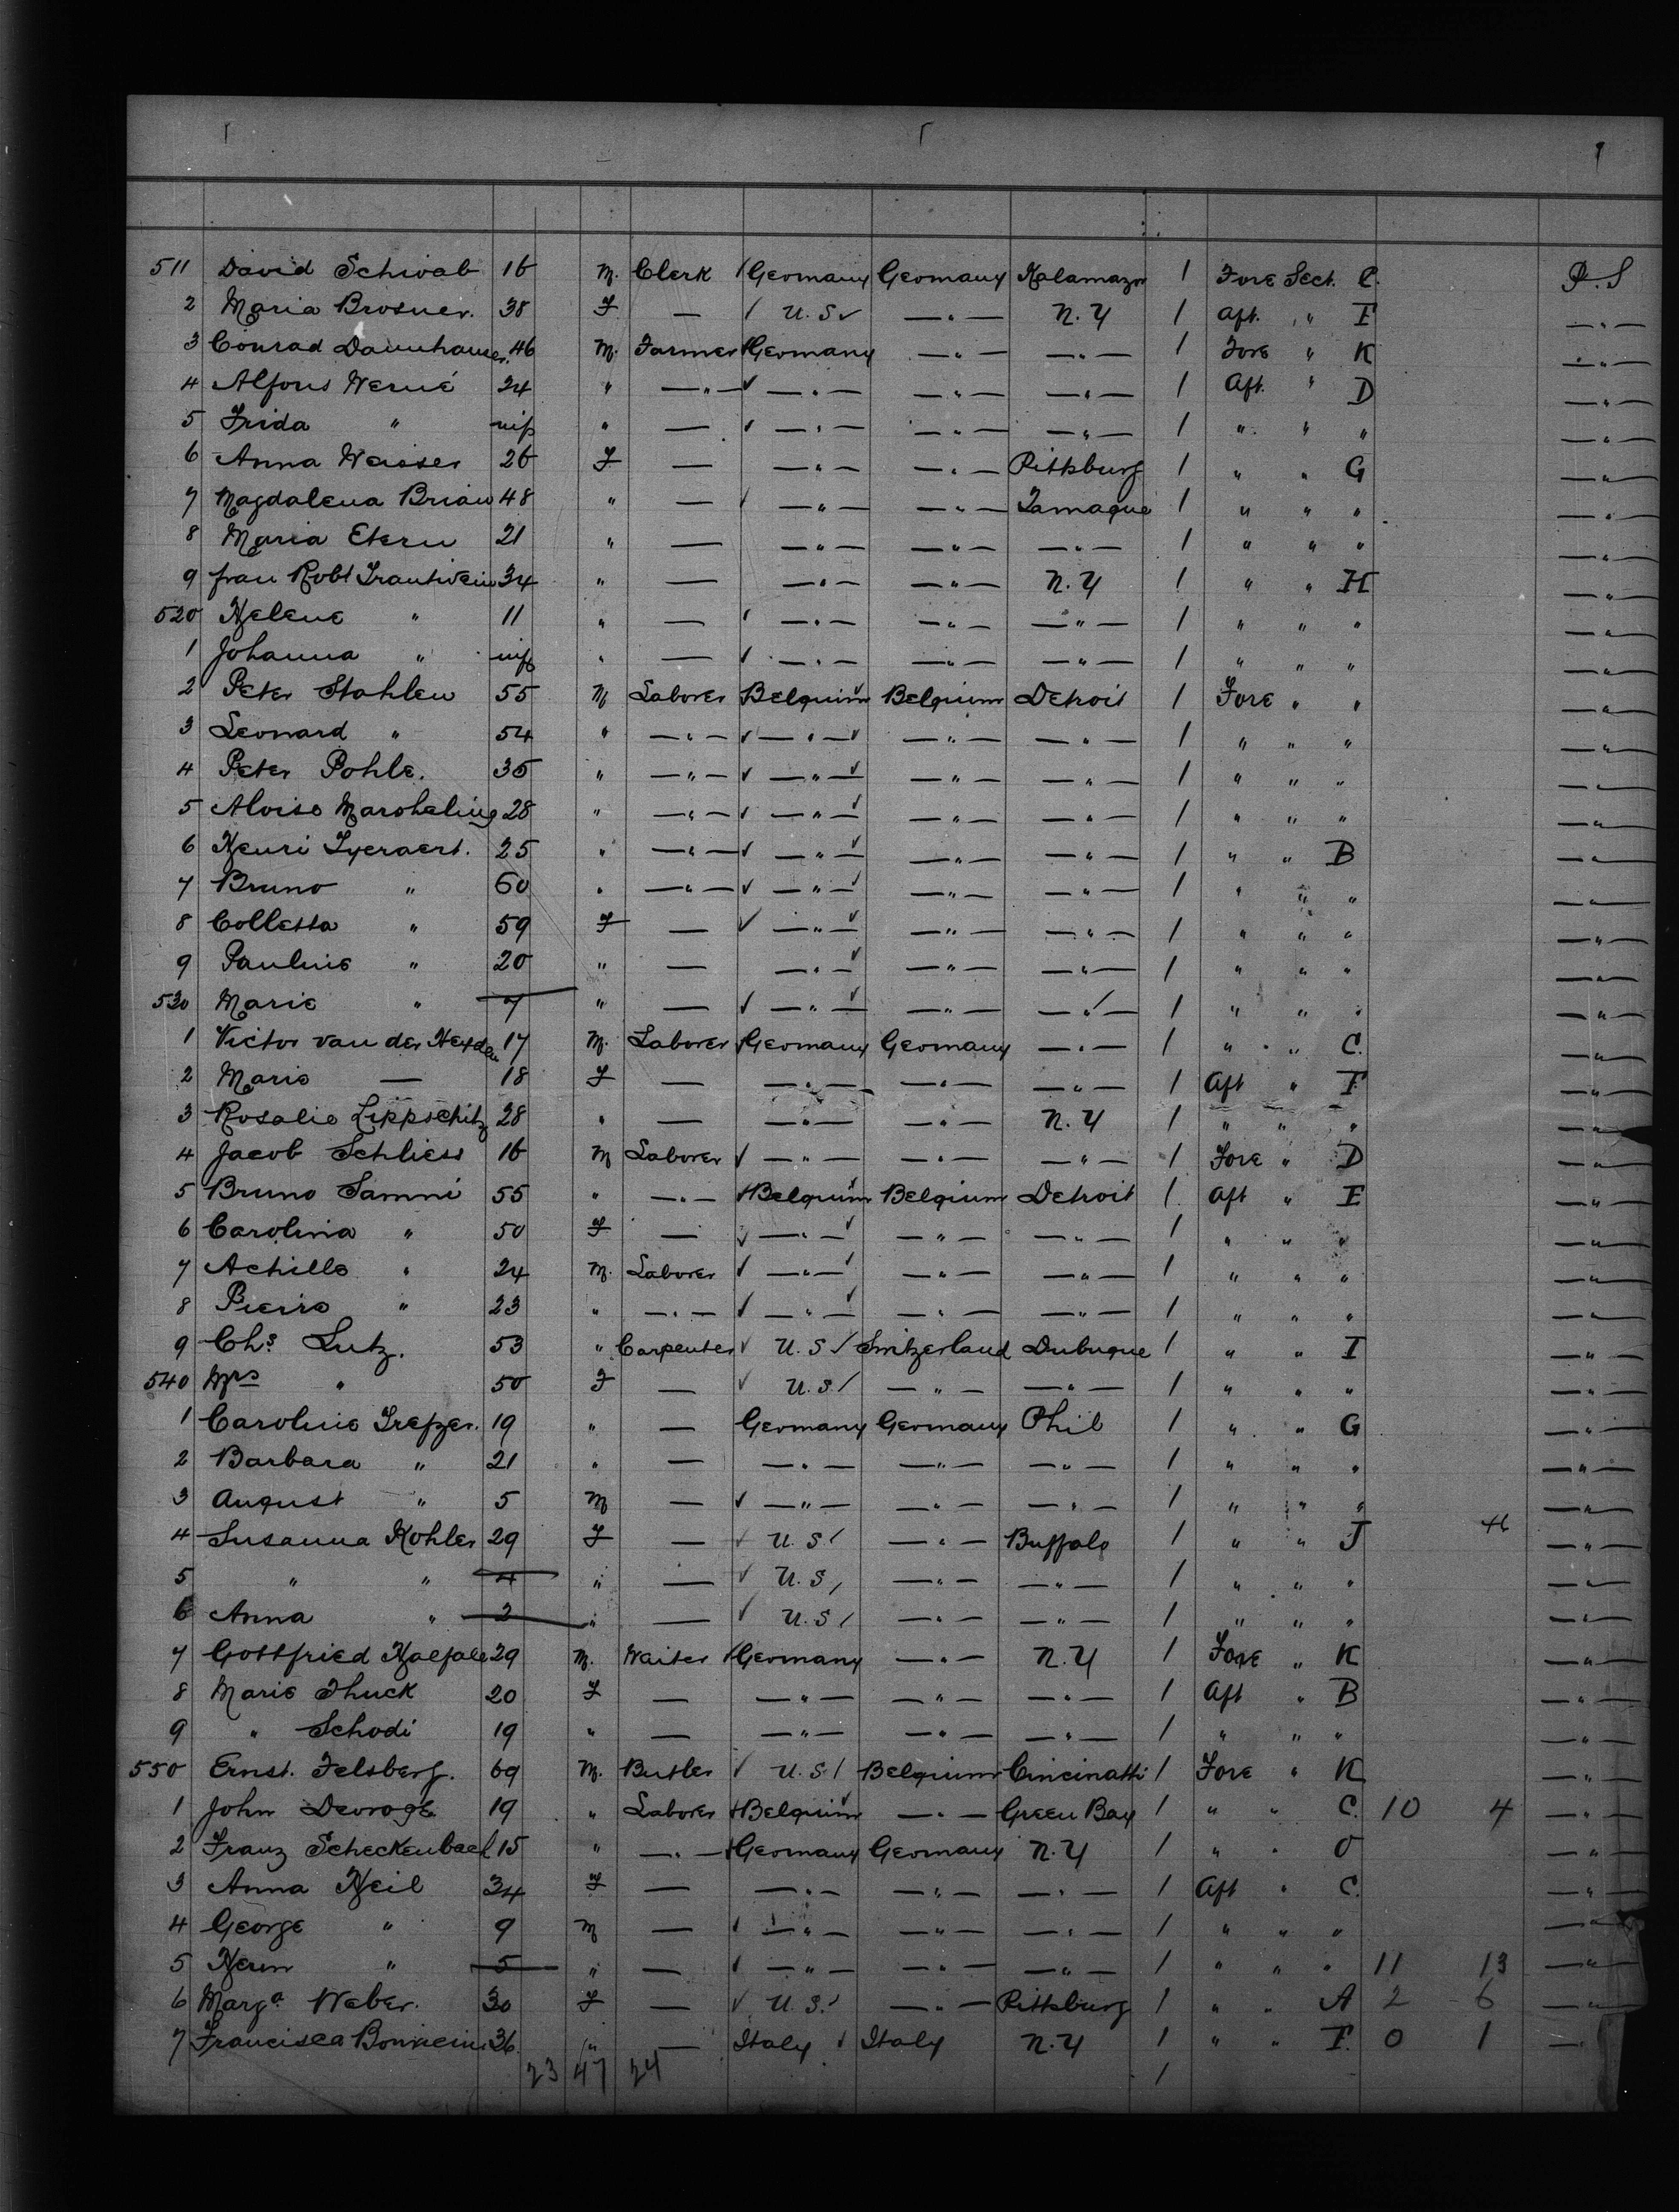 511 David Schwab 16 M. Clerk / Germany Germany Kalamazoo 1 Fore Sect. C. P.S
2 Maria Brosner. 38 F — / U.S ✓ —"— N.Y 1 Aft. " F —"—
3 Conrad Dannhauser 46 M. Farmer Germany —"— —"— 1 Fore " K —"—
4 Alfons Werné 24 " —"— ✓ —"— —"— —"— 1 Aft. " D —"—
5 Frida " " — ✓ —"— —"— —"— 1 " " " —"—
6 Anna Weisser 26 F — —"— —"— Pittsburg 1 " " G —"—
7 Magdalena Brian 48 " — / —"— —"— Tamaque 1 " " " —"—
8 Maria Etern 21 " — —"— —"— —"— 1 " " " —"—
9 frau Robt Trautwein 34 " — —"— —"— N.Y 1 " " H —"—
520 Helene " 11 " — / —"— —"— —"— 1 " " " —"—
1 Johanna " " — ✓ —"— —"— —"— 1 " " " —"—
2 Peter Stahlen 55 M Laborer Belgium Belgium Detroit 1 Fore " " —"—
3 Leonard " 54 " —"— ✓ —"— ✓ —"— —"— 1 " " " —"—
4 Peter Pohle. 35 " —"— ✓ —"— ✓ —"— —"— 1 " " " —"—
5 Aloise 28 " —"— ✓ —"— ✓ —"— —"— 1 " " " —"—
6 Henri Lyeraert. 25 " —"— ✓ —"— ✓ —"— —"— 1 " " B —"—
7 Bruno " 60 " —"— ✓ —"— ✓ —"— —"— 1 " " " —"—
8 Colletta " 59 F — ✓ —"— ✓ —"— —"— 1 " " " —"—
9 Pauline " 20 " — —"— ✓ —"— —"— 1 " " " —"—
530 Marie " 7 " — ✓ —"— ✓ —"— —"— 1 " " " —"—
1 Victor van der Heyden 17 M. Laborer Germany Germany —"— 1 " " C. —"—
2 Marie — 18 F — —"— —"— —"— 1 Aft " F —"—
3 Rosalie Lippschitz 28 " — —"— —"— N.Y 1 " " " —"—
4 Jacob Schliess 16 M Laborer ✓ —"— —"— —"— 1 Fore " D —"—
5 Bruno Sammi 55 " —"— Belgium Belgium Detroit 1 Aft " E —"—
6 Carolina " 50 F — ✓ —"— ✓ —"— —"— 1 " " " —"—
7 Achille " 24 M. Laborer ✓ —"— ✓ —"— —"— 1 " " " —"—
8 Pierre " 23 " —"— ✓ —"— ✓ —"— —"— 1 " " " —"—
9 Chs. Lutz. 53 " Carpenter ✓ U.S / Switzerland Dubuque 1 " " I —"—
540 Mrs " 50 F — ✓ U.S / —"— —"— 1 " " " —"—
1 Caroline 19 " — Germany Germany Phil 1 " " G —"—
2 Barbara " 21 " — —"— —"— —"— 1 " " " —"—
3 August " 5 M — ✓ —"— —"— —"— 1 " " " —"—
4 Susanna Kohler 29 F — ✓ U.S / —"— Buffalo 1 " " J —"—
5 " " 4 " — ✓ U.S / —"— —"— 1 " " " —"—
6 Anna " 2 " — ✓ U.S / —"— —"— 1 " " " —"—
7 Gottfried Haefale 29 M. Waiter Germany —"— N.Y 1 Fore " K —"—
8 Marie Thuck 20 F — —"— —"— —"— 1 Aft " B —"—
9 " Schodi 19 " — —"— —"— —"— 1 " " " —"—
550 Ernst. Felsberg. 69 M. Butler ✓ U.S / Belgium Cincinatti 1 Fore " K —"—
1 John Devroge 19 " Laborer Belgium —"— Green Bay 1 " " C. 10 4 —"—
2 Franz Scheckenbach 15 " —"— Germany Germany N.Y 1 " " O —"—
3 Anna Heil 34 F — —"— —"— —"— 1 Aft " C. —"—
4 George " 9 M — ✓ —"— —"— —"— 1 " " " —"—
5 Herm " 5 " — ✓ —"— —"— —"— 1 " " " 11 13 —"—
6 Marga. Weber. 30 F — ✓ U.S / —"— Pittsburg 1 " " A 2 6 —"—
7 Francisca 36 " — Italy Italy N.Y 1 " " F. 0 1 —"—
23 47 24 1